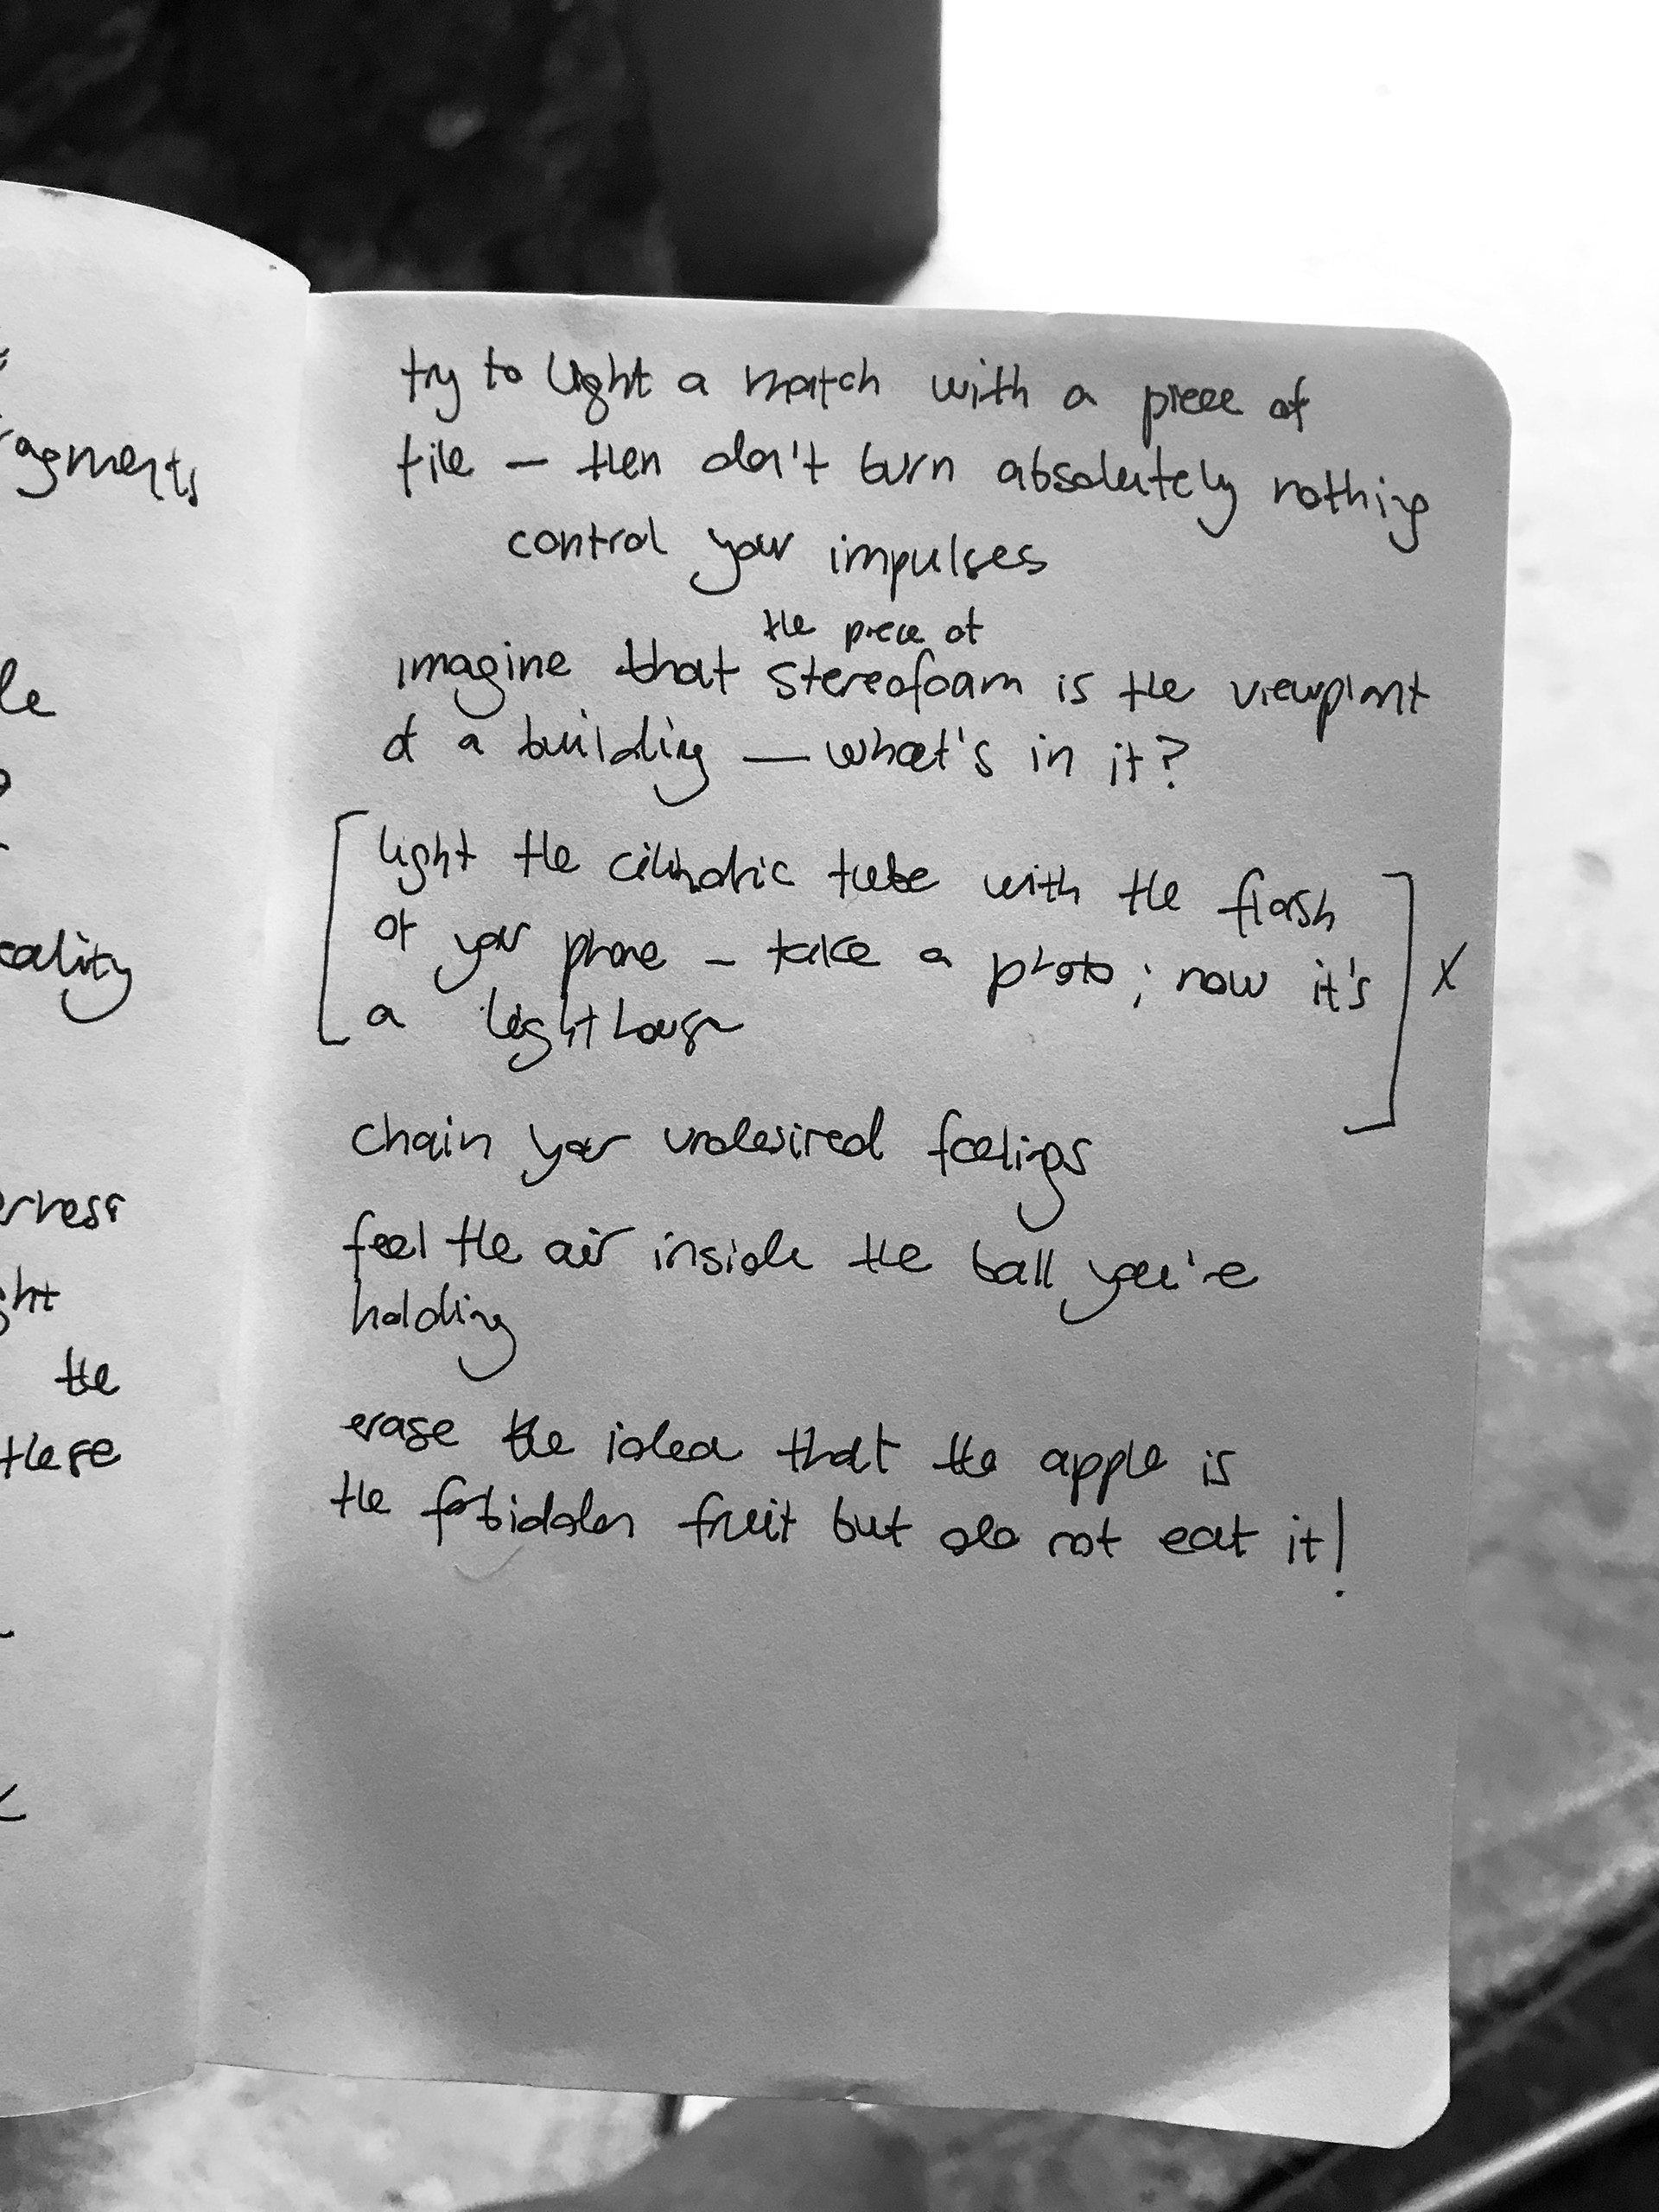 ragments
le
eality
erness
ght
the
these
try to light a match with a piece of
tile — then don't burn absolutely nothing
control your impulses
the piece of
imagine that stereofoam is the viewpoint
of a building — what's in it?
[light the cilindric tube with the flash
of your phone – take a photo; now it's] x
a lighthouse
chain your undesired feelings
feel the air inside the ball you're
holding
erase the idea that the apple is
the forbidden fruit but do not eat it!